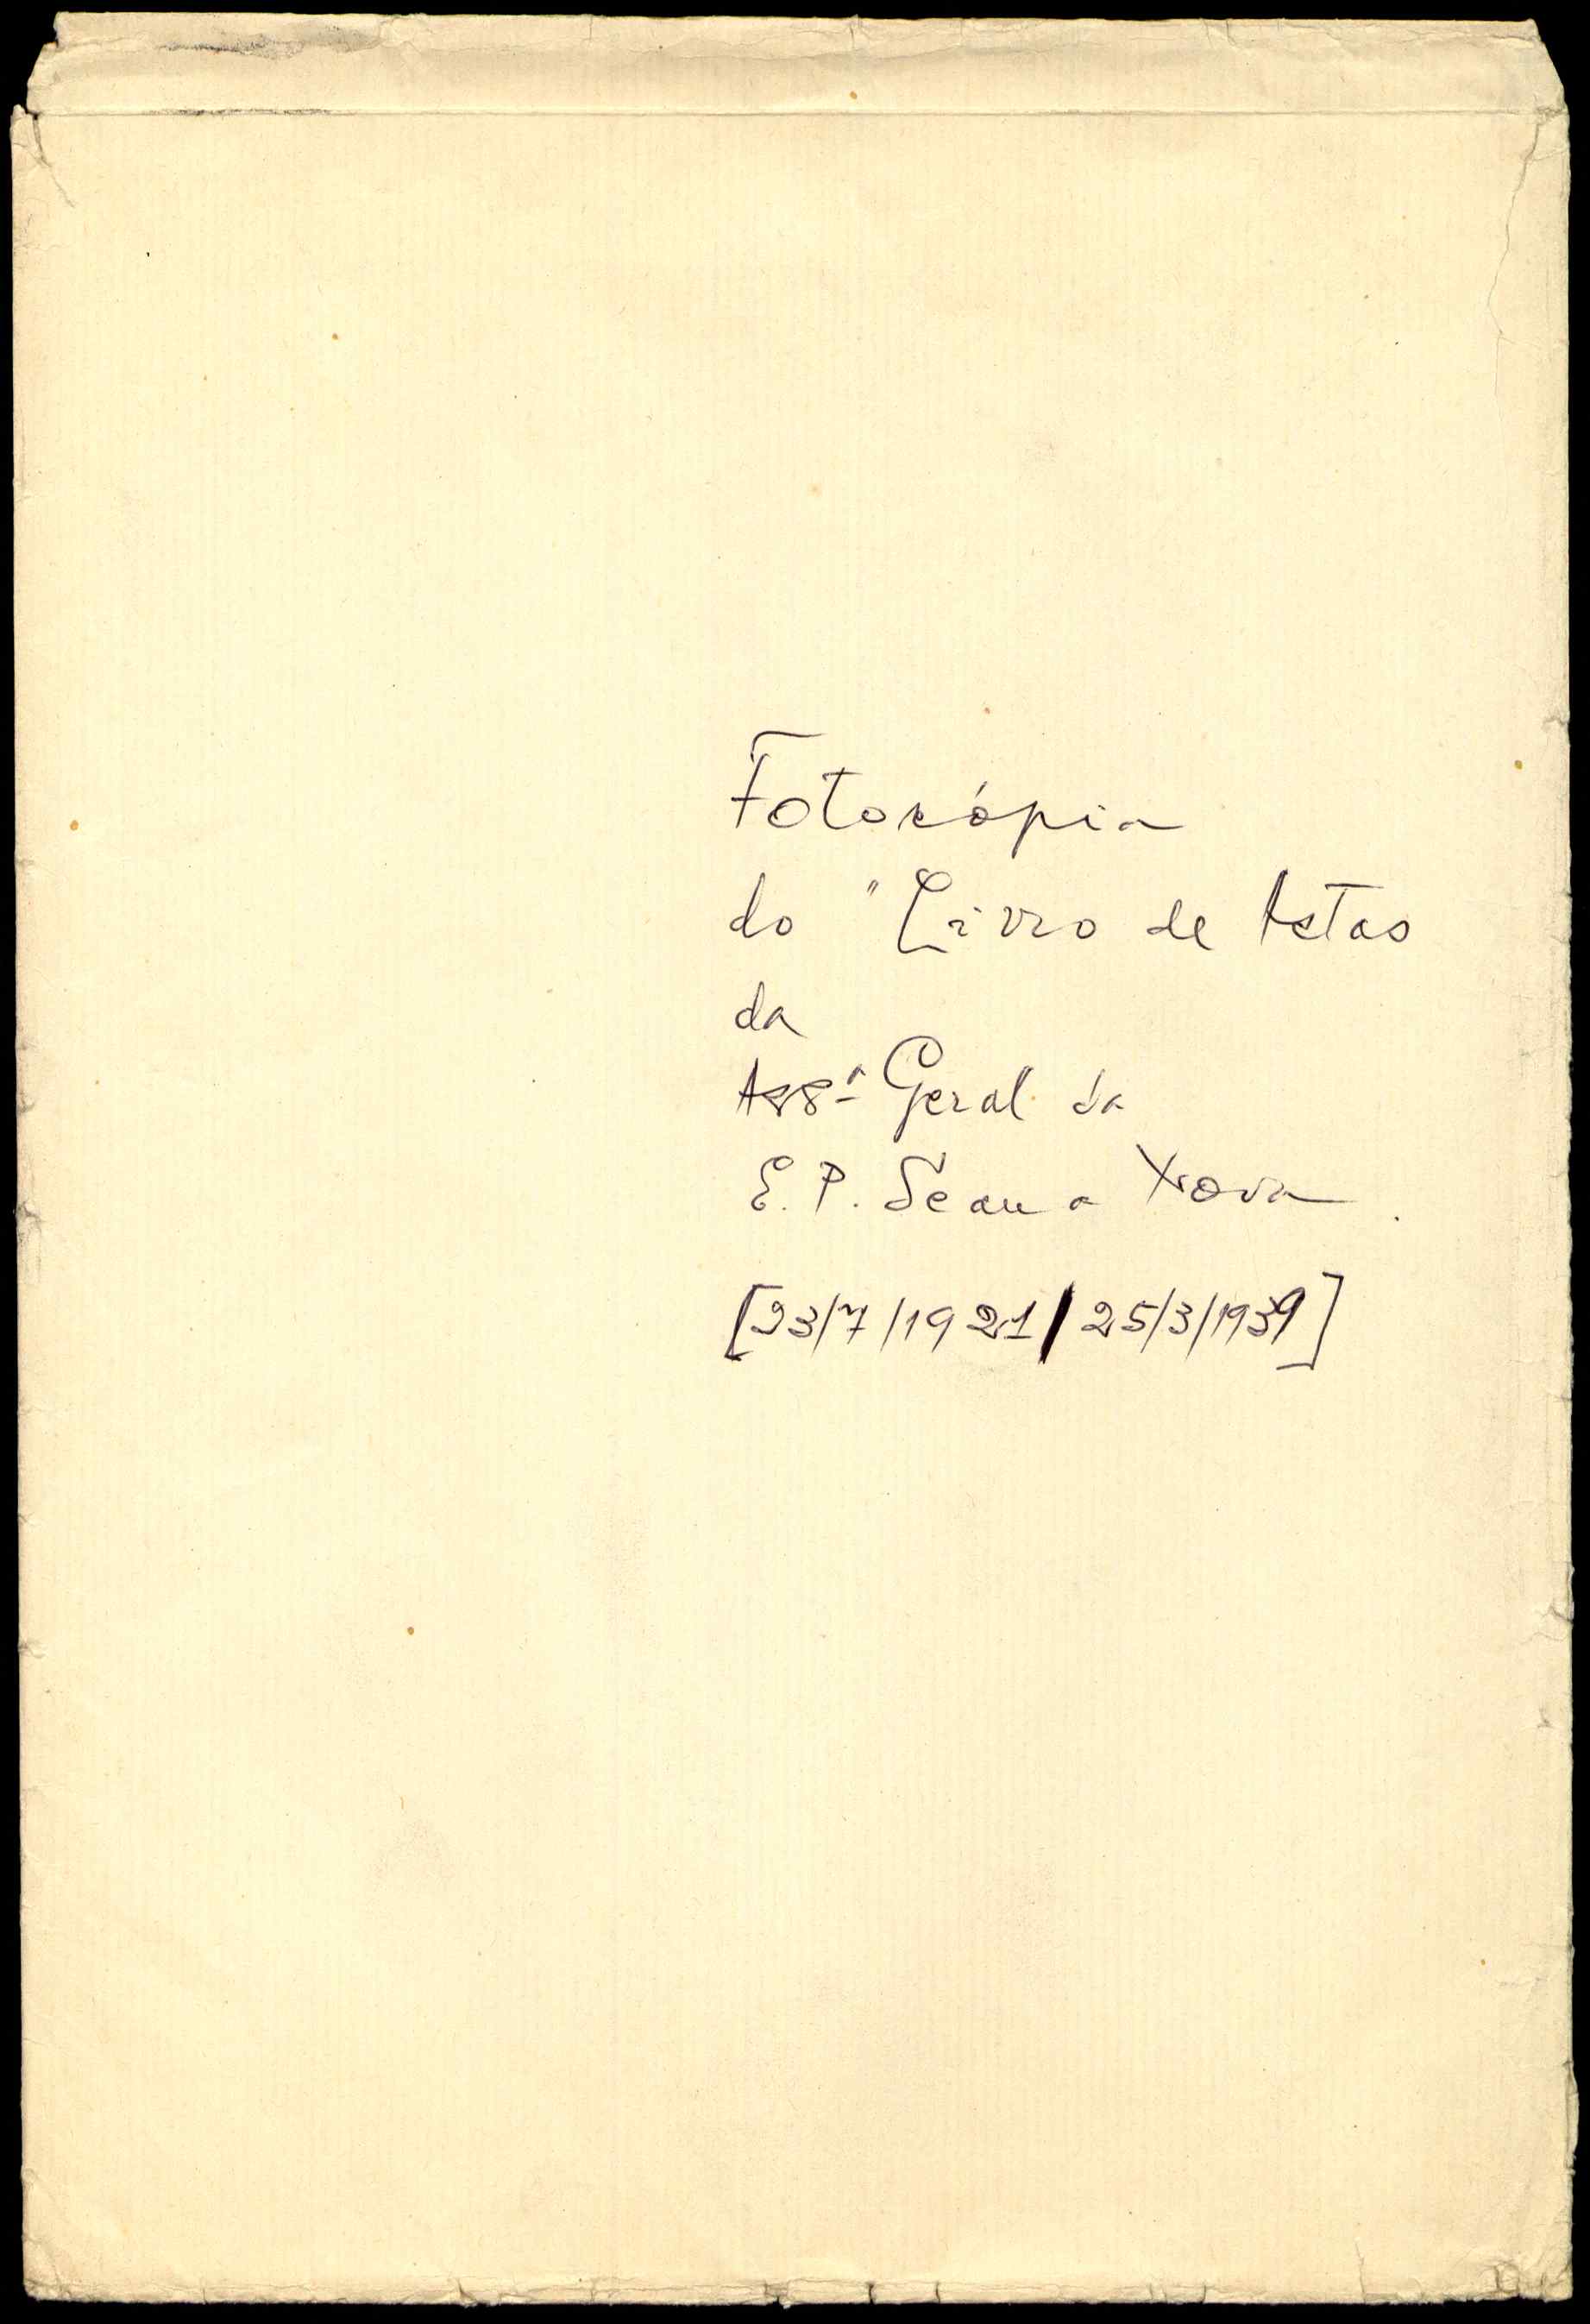 Fotocópia
do "Livro de Actas
da
Ass.ª Geral da
E. P. Seara Nova.
[23/7/1921/25/3/1939]